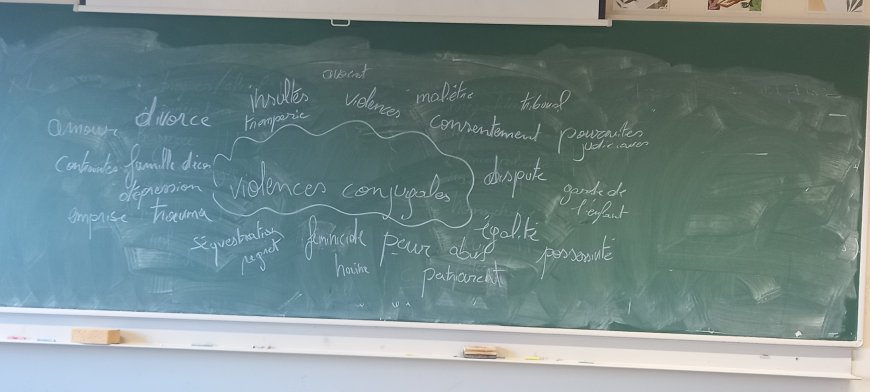 avocat
insultes violences malêtre tribunal
amour divorce tromperie consentement poursuites
judiciaires
contraintes famille
violences conjugales dispute
dépression garde de
l'enfant
emprise trauma
séquestration féminicide peur abus égalité possessivité
regret haine patriarcat